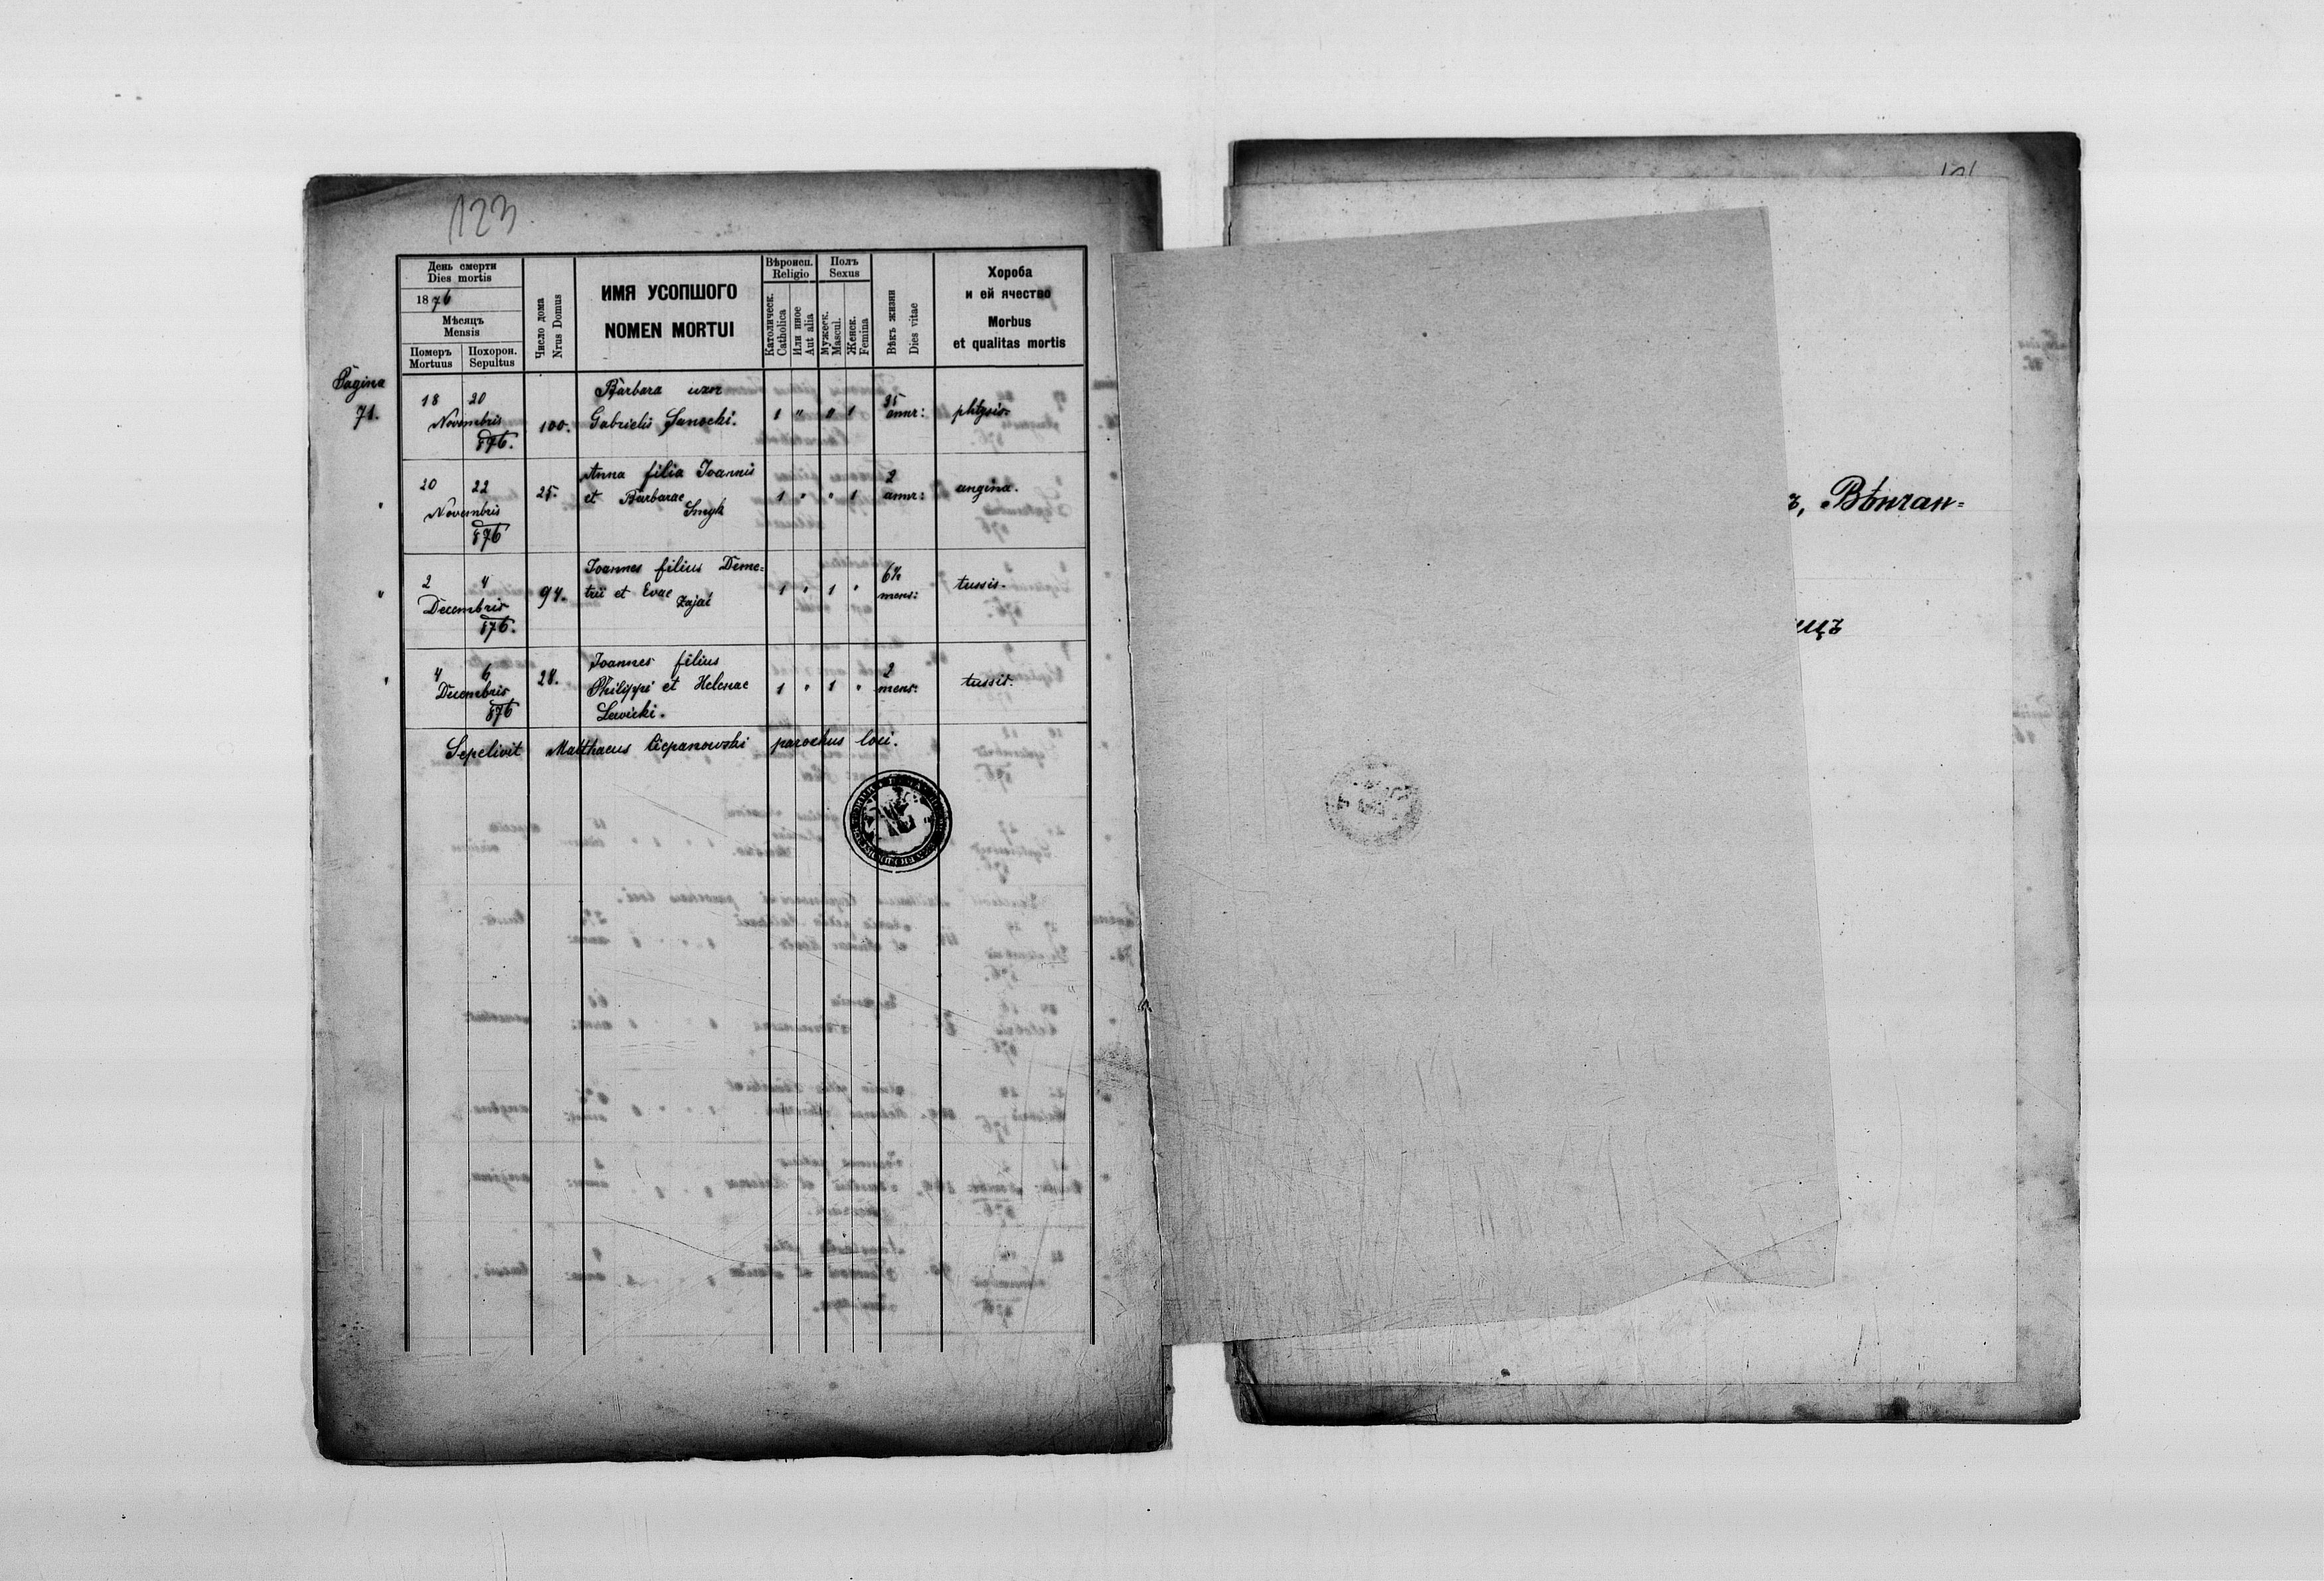 123
День смерти
Dies mortis
1876
Мѣсяцъ
Mensis
Померъ
Mortuus
Похорон.
Sepultus
Число дома
Nrus Domus
ИМЯ УСОПШОГО
NOMEN MORTUI
Вѣроисп.
Religio
Католическ.
Catholica
Или иное
Aut alia
Полъ
Sexus
Мужеск.
Mascul.
Женск.
Femina
Вѣкъ жизни
Dies vitae
Хороба
и ей ячество
Morbus
et qualitas mortis
Pagina
71.
18 20
Novembris
876.
100.
Barbara uxor
Gabrielis Sanocki.
1 " " 1
25
annr:
phtysis.
20 22
Novembris
876
25.
Anna filia Joannis
et Barbarae
Smyk
1 " " 1
2
annr:
angina.
2 4
Decembris
876.
94.
Joannes filius Deme=
trii et Evae
Zajac
1 " 1 "
6½
mens:
tussis.
4 6
Decembris
876
28.
Joannes filius
Philippi et Helenae
Lewicki.
1 " 1 "
2
mens:
tussis.
Sepelivit Matthaeus Ciepanowski parochus loci.
ъ, Вѣнчан=
ицъ